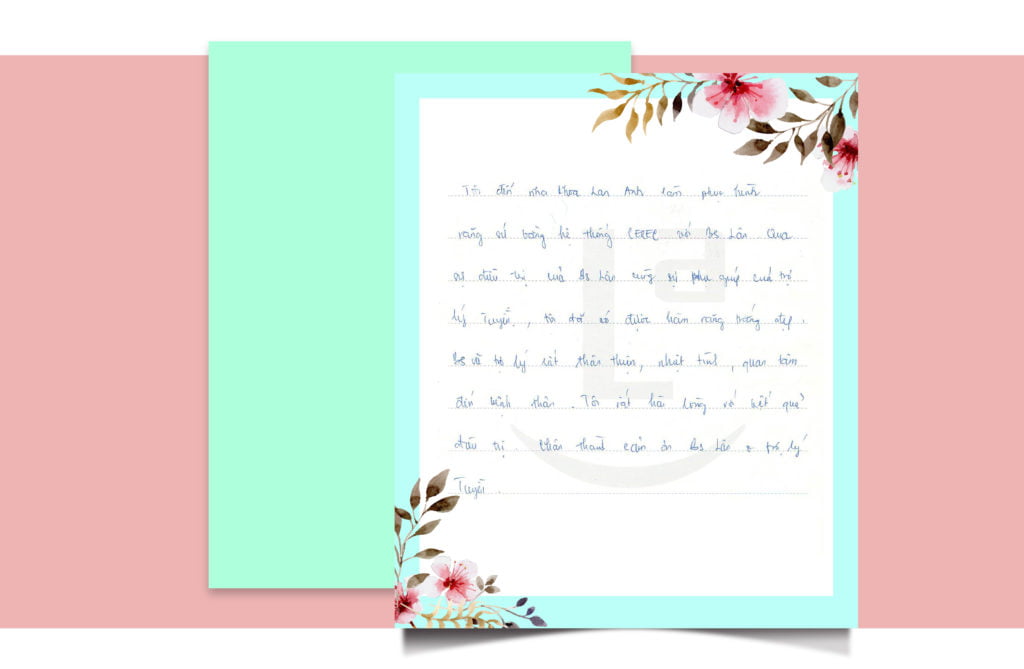 Tôi đến nha khoa Lan Anh làm phục hình
răng sứ bằng hệ thống CEREC với Bs Lân Qua
sự điều trị của Bs Lân cùng sự phụ giúp của trợ
lý Tuyền, tôi đã có được hàm răng trắng đẹp.
Bs và trợ lý rất thân thiện, nhiệt tình, quan tâm
đến bệnh nhân. Tôi rất hài lòng với kết quả
điều trị. Chân thành cảm ơn Bs Lân & trợ lý
Tuyền.